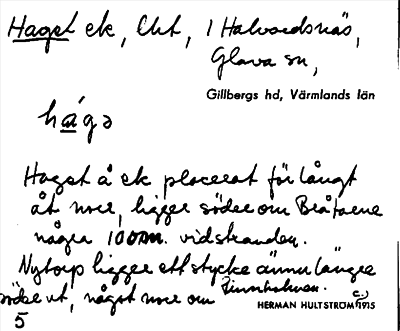 Haget ek, Cht, / Halvardsnäs,
Glava sn,
Gillbergs hd, Värmlands län
hágə
Haget å ek placerat för långt
åt norr, ligger söder om Bråtarne
några 100 m. vid stranden.
Nytorp ligger ett stycke ännu längre
söder ut, något norr om Finnholmen.
HERMAN HULTSTRÖM 1915
5